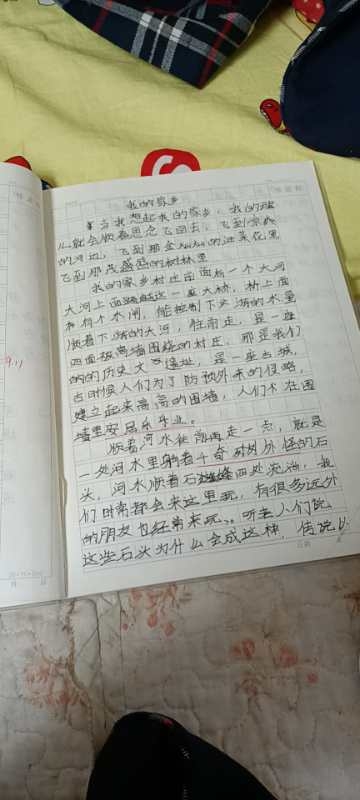 我的家乡
当我想起我的家乡,我的魂
儿就会顺着思念飞回去,飞到凉爽
的河边,飞到那金灿灿的油菜花里
飞到那茂盛的树林里
我的家乡村庄前面有一个大河
大河上面一座大桥,桥上面
有个水闸,能控制下游的水量
顺着下游的大河,往南走,是一座
四面被高墙围绕的村庄,那是我们
的历史文遗址,是一座古城,
古时候人们为了防预外来的侵略,
建立起来高高的围墙,人们在围
墙里安居乐业。
顺着河水往前再走一点,就是
一处河水里躺着千奇怪的石
头,河水顺着石四处流淌,我
们时常都会来这里玩,有很多远外
的朋友也经常来玩。听老人们说
这些石头为什么会成这样,传说
9.11